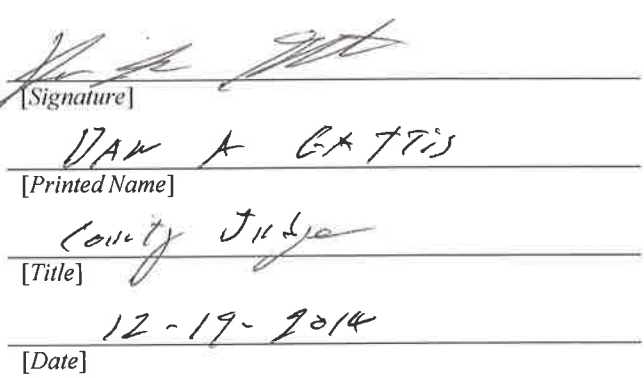 [Signature]
DAN A GATTIS
[Printed Name]
County Judge
[Title]
12-19-2014
[Date]